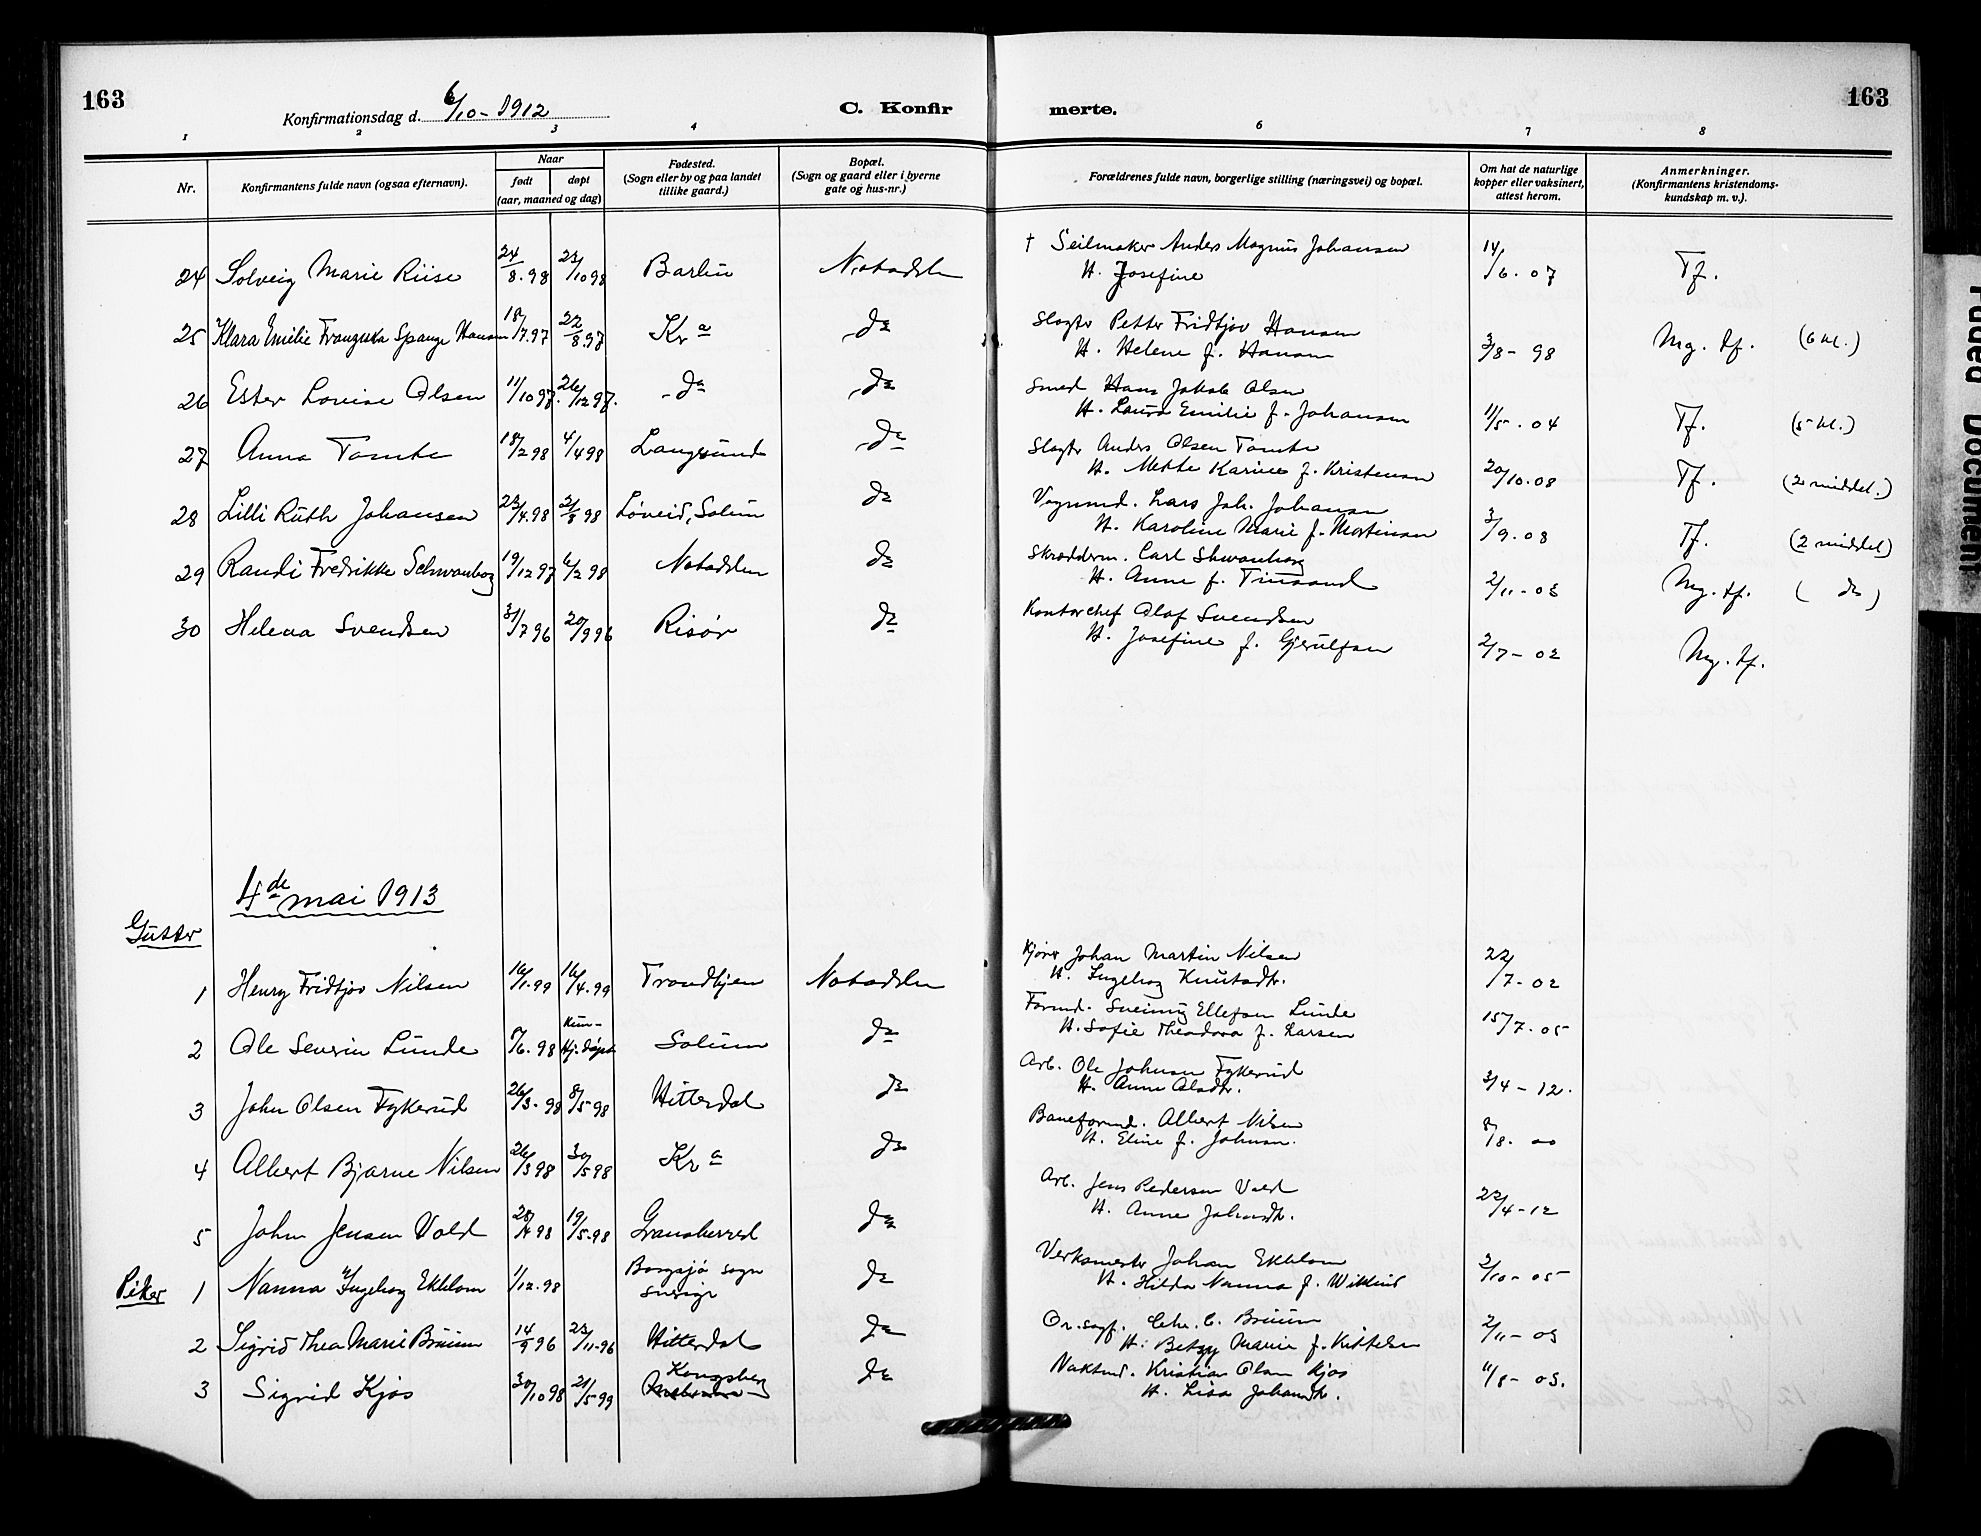 163
Konfirmationsdag d. 6/10 - 1912
C. Konfir
merte.
163
1 2 3 4 6 7 8
Nr.
Konfirmantens fulde navn (ogsaa efternavn).
Naar
født
døpt
(aar, maaned og dag)
Fødested.
(Sogn eller by og paa landet
tillike gaard.)
Bopæl.
(Sogn og gaard eller i byerne
gate og hus-nr.)
Forældrenes fulde navn, borgerlige stilling (næringsvei) og bopæl.
Om hat de naturlige
kopper eller vaksinert,
attest herom.
Anmerkninger.
(Konfirmantens kristendoms-
kundskap m. v.).
24 Solveig Marie Riise 24/8.98 23/10 98 Notodden † Seilmaker Anders Magnus Johansen 14/6. 07 Tf.
H. Josefine
25 Klara Emilie Spange Hansen 18/7.97 22/8.97 Kra do Slagter Petter Fridtjov Hansen 3/8 - 98 Mg. tf. (6 kl.)
H. Helene f. Hansen
26 Ester Lovise Olsen 11/10 97. 26/12 97. do do Smed Hans Jakob Olsen 11/5. 04 Tf. (5 kl.)
H. Laura Emilie f. Johansen
27 Anna Tomte 18/2 98 4/4 98 Langesund do Slagter Anders Olsen Tomte 20/10.08 Tf. (2 middel.)
H. Mette Karine f. Kristensen
28 Lilli Ruth Johansen 23/4.98 21/8 98 Løveid, Solum do Vognmd. Lars Joh. Johansen 3/9. 08 Tf. (2 middel)
H. Karoline Marie f. Mortensen
29 Randi Fredrikke Schwanborg 19/12 97 6/2 98 Notodden do Skrædderm. Carl Shwanborg 2/11 - 03 Mg. tf. ( do )
H. Anne f. Tinsand
30 Helena Svendsen 31/7 96 20/9 96 Risør do Kontorchef Olaf Svendsen 2/7 - 02 Mg. tf.
H. Josefine f. Gjerulfsen
4de mai 1913
Gutter
1 Henry Fridtjov Nilsen 16/1.99 16/4.99 Trondhjem Notodden Kjører Johan Martin Nilsen 22/7 - 02
H. Ingeborg Knutsdtr.
2 Ole Severin Lunde 8/6. 98 Kun hj. døpt Solum do Formd. Sveinung Ellefsen Lunde 15/7. 05
H. Sofie Theodora f. Larsen
3 John Olsen Fykerud 26/3. 98 8/5 - 98 Hitterdal do Arb. Ole Johnsen Fykerud 3/4 - 12.
H. Anne Olsdtr.
4 Albert Bjarne Nilsen 26/3 98 30/5 98 Kra do Baneformd. Albert Nilsen 8/8. 00
H. Eline f. Johnsen.
5 John Jensen Vold 28/4 98 19/5.98 Gransherred do Arb. Jens Pedersen Vold 22/4 - 12
H. Anne Johnsdtr.
Piker
1 Nanna Ingeborg Ekblom 1/12.98 Borgsjø sogn Sverige do Verksmester Johan Ekblom 2/10 - 05
H. Hilda Nanna f. Wiklund
2 Sigrid Thea Marie Bruun 14/9 96 23/11 96 Hitterdal do Or.sagf. Chr. C. Bruun 2/11 - 03
H. Betzy Marie f. Kittelsen
3 Sigrid Kjos 30/10 98 21/5 99 Kongsberg do Vaktmd. Kristian Olsen Kjos 11/8 - 03.
H. Lisa Johansdtr.